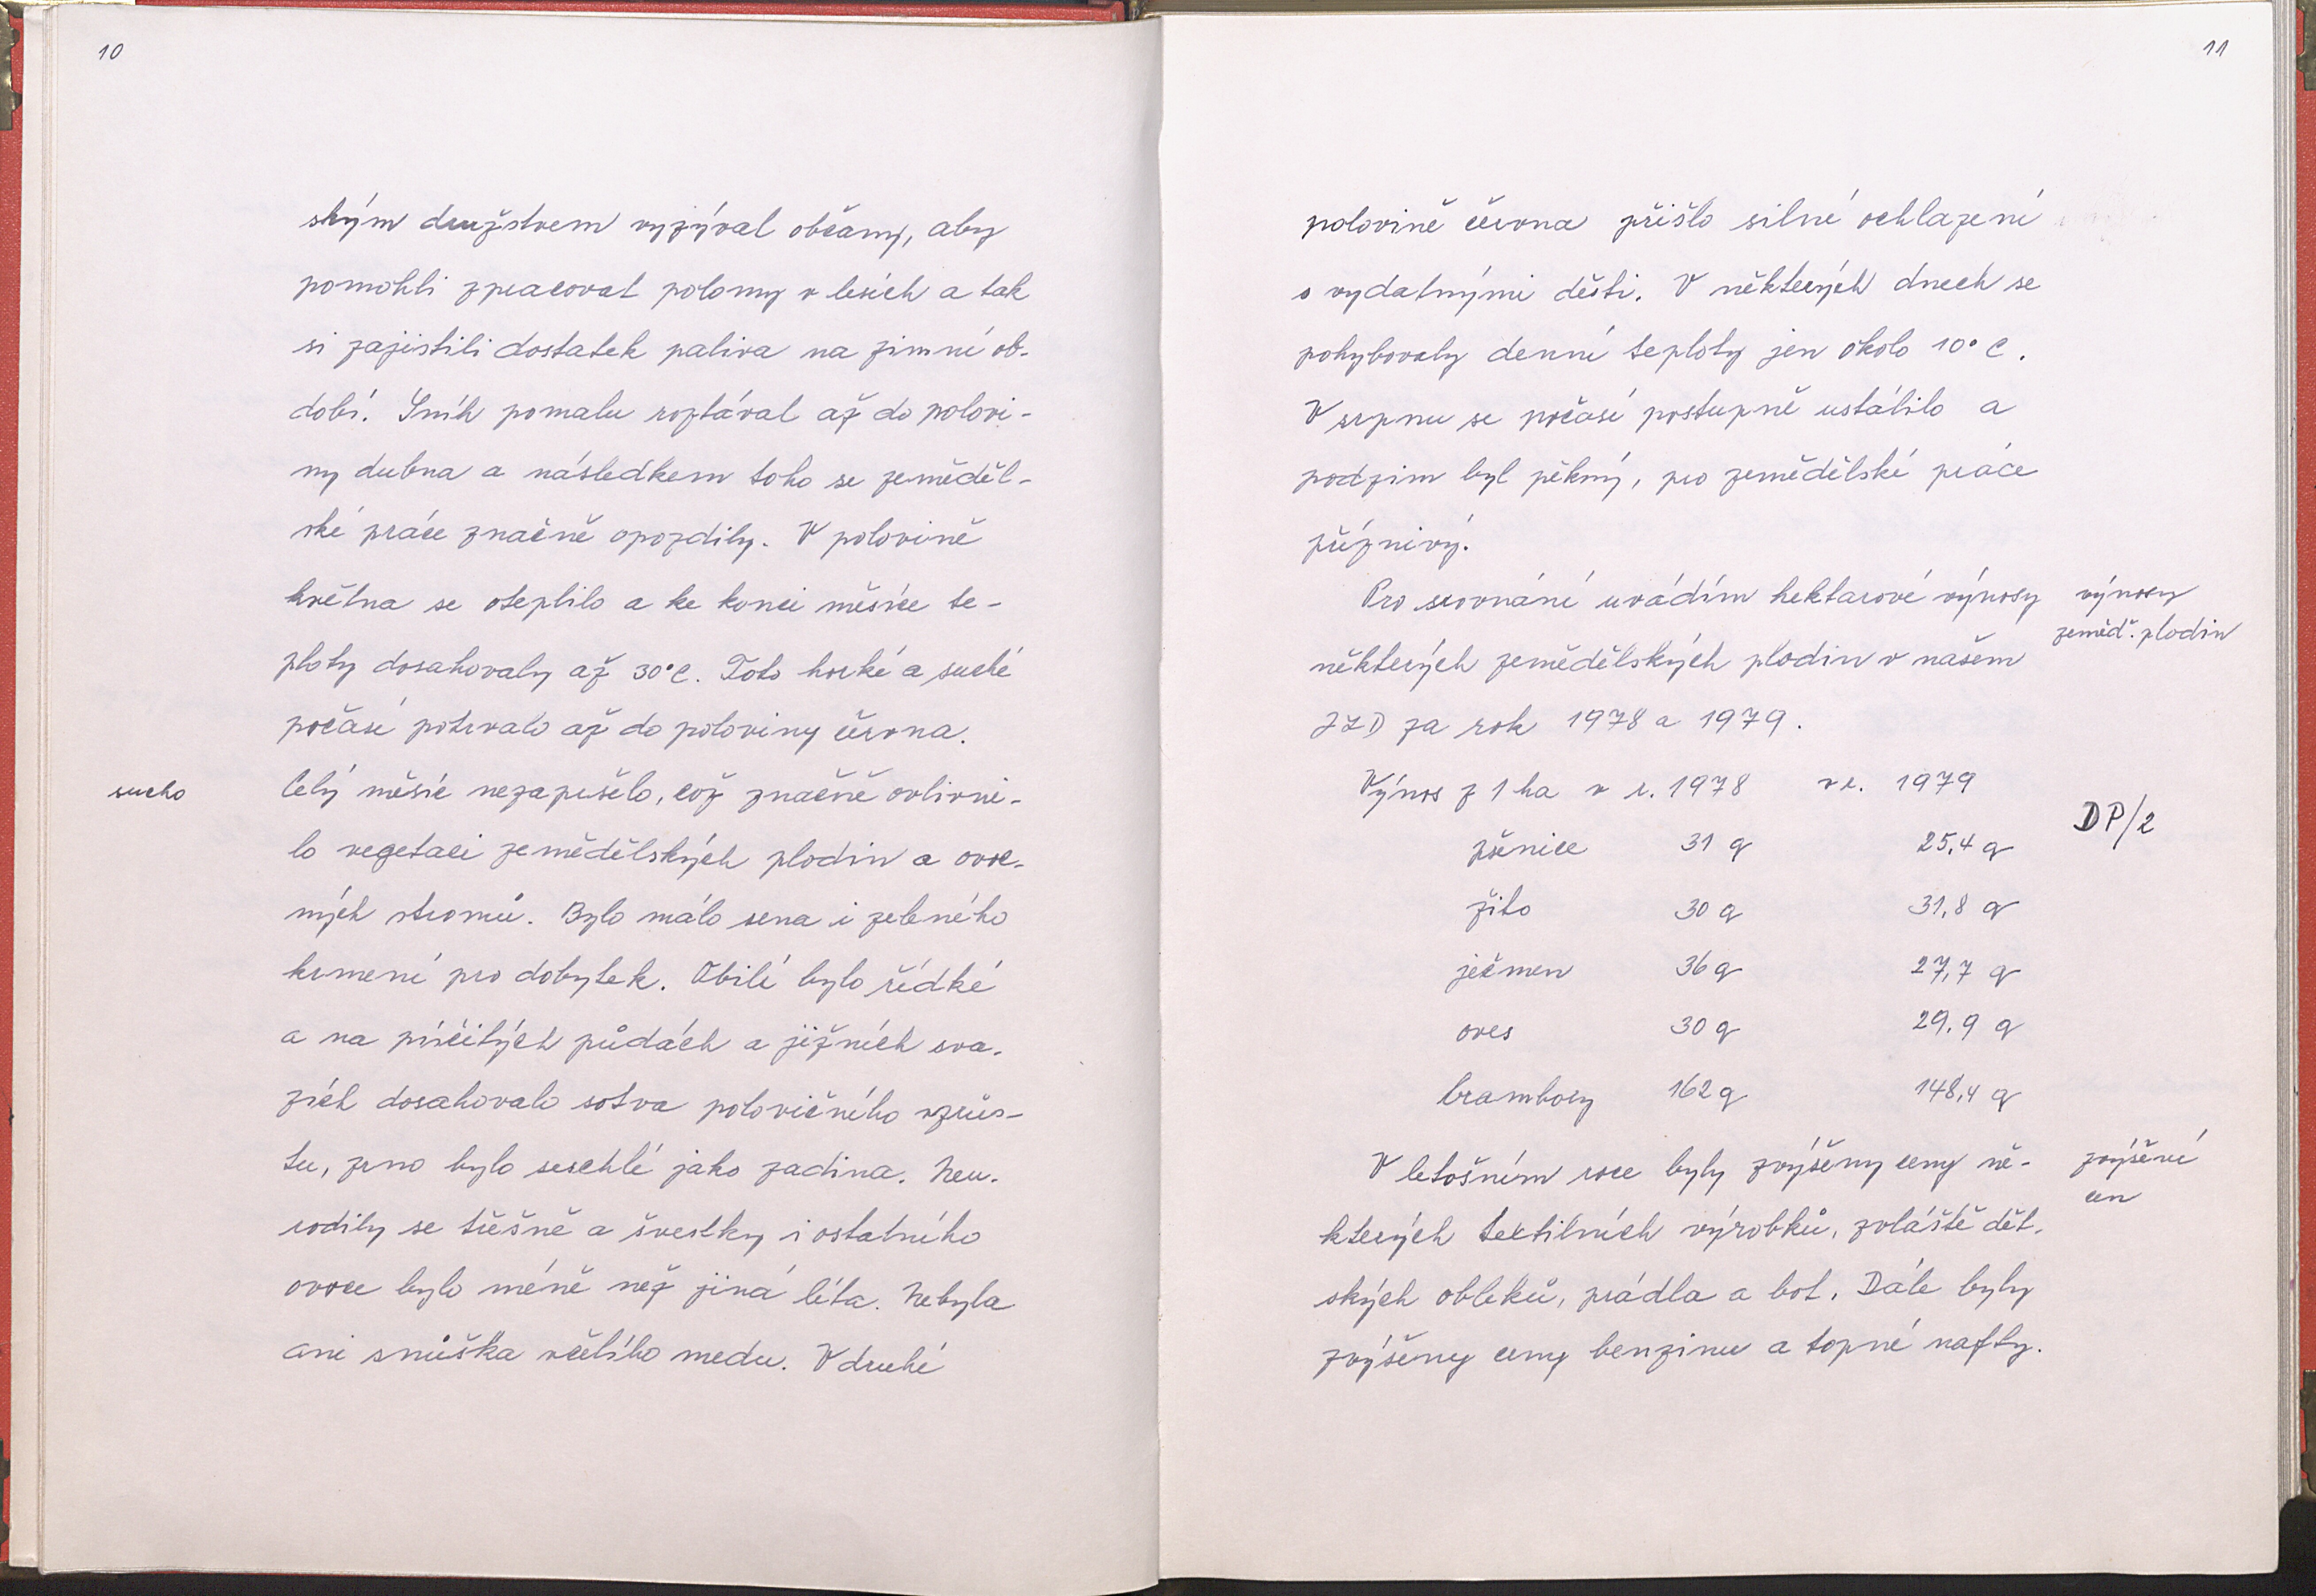 10
ským družstvem vyzýval občany, aby
pomohli zpracovat polomy v lesích a tak
si zajistili dostatek paliva na zimní ob-
dobí. Sníh pomalu roztával až do polovi-
ny dubna a následkem toho se zeměděl-
ské práce značně opozdily. V polovině
května se oteplilo a ke konci měsíce te-
ploty dosahovaly až 30°C. Toto horké a suché
počasí potrvalo až do poloviny června.
sucho
Celý měsíc nezapršelo, což značně ovlivni-
lo vegetaci zemědělských plodin a ovoc-
ných stromů. Bylo málo sena i zeleného
krmení pro dobytek. Obilí bylo řídké
a na písčitých půdách a jižních sva-
zích dosahovalo sotva polovičního vzrůs-
tu, zrno bylo seschlé jako zadina. Neu-
rodily se třešně a švestky i ostatního
ovoce bylo méně než jiná léta. Nebyla
ani snůška včelího medu. V druhé
11
polovině června přišlo silné ochlazení
s vydatnými dešti. V některých dnech se
pohybovaly denní teploty jen okolo 10°C.
V srpnu se počasí postupně ustálilo a
podzim byl pěkný, pro zemědělské práce
příznivý.
Pro srovnání uvádím hektarové výnosy
výnosy
zeměd. plodin
některých zemědělských plodin v našem
JZD za rok 1978 a 1979.
Výnos z 1 ha v r. 1978 v r. 1979
DP/2
pšenice 31 q 25,4 q
žito 30 q 31,8 q
ječmen 36 q 27,7 q
oves 30 q 29,9 q
brambory 162 q 148,4 q
V letošním roce byly zvýšeny ceny ně-
zvýšení
cen
kterých textilních výrobků, zvláště dět-
ských obleků, prádla a bot. Dále byly
zvýšeny ceny benzinu a topné nafty.